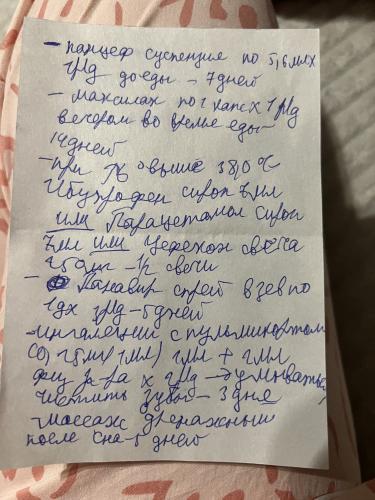 - панцеф суспензия по 5,6 мл х
1 р/д до еды - 7 дней
- максилак по 1 капс х 1 р/д
вечером во время еды -
14 дней
- при t° выше 38,0 °C
Ибупрофен сироп 7 мл
или Парацетамол сироп
7 мл или Цефекон свеча
250 мг - 1/2 свечи
- Панавир спрей в зев по
1 дх р/д - 5 дней
- ингаляции с пульмикортом
мл + 2 мл
физ р-ра х 2 р/д → умывать,
чистить зубы - 3 дня
- массаж дренажный
после сна - 5 дней